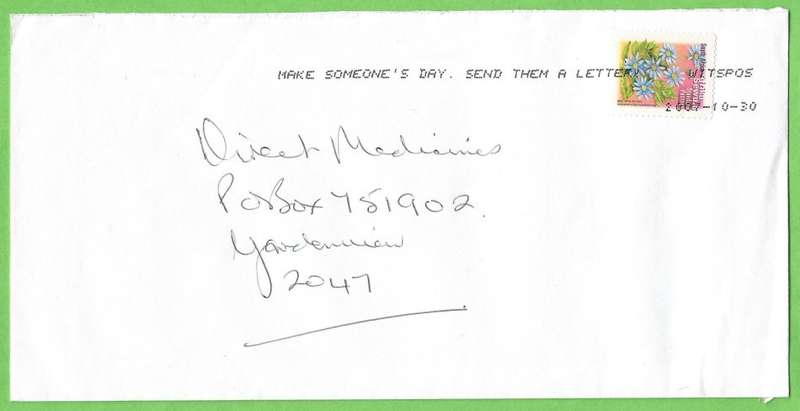 MAKE SOMEONE'S DAY. SEND THEM A LETTER! WITSPOS
2007-10-30
Direct Medicines
PO Box 751902
Gardenview
2047